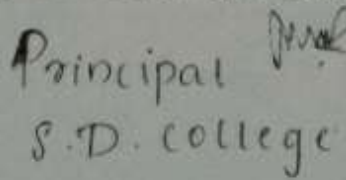 Principal
S.D. College